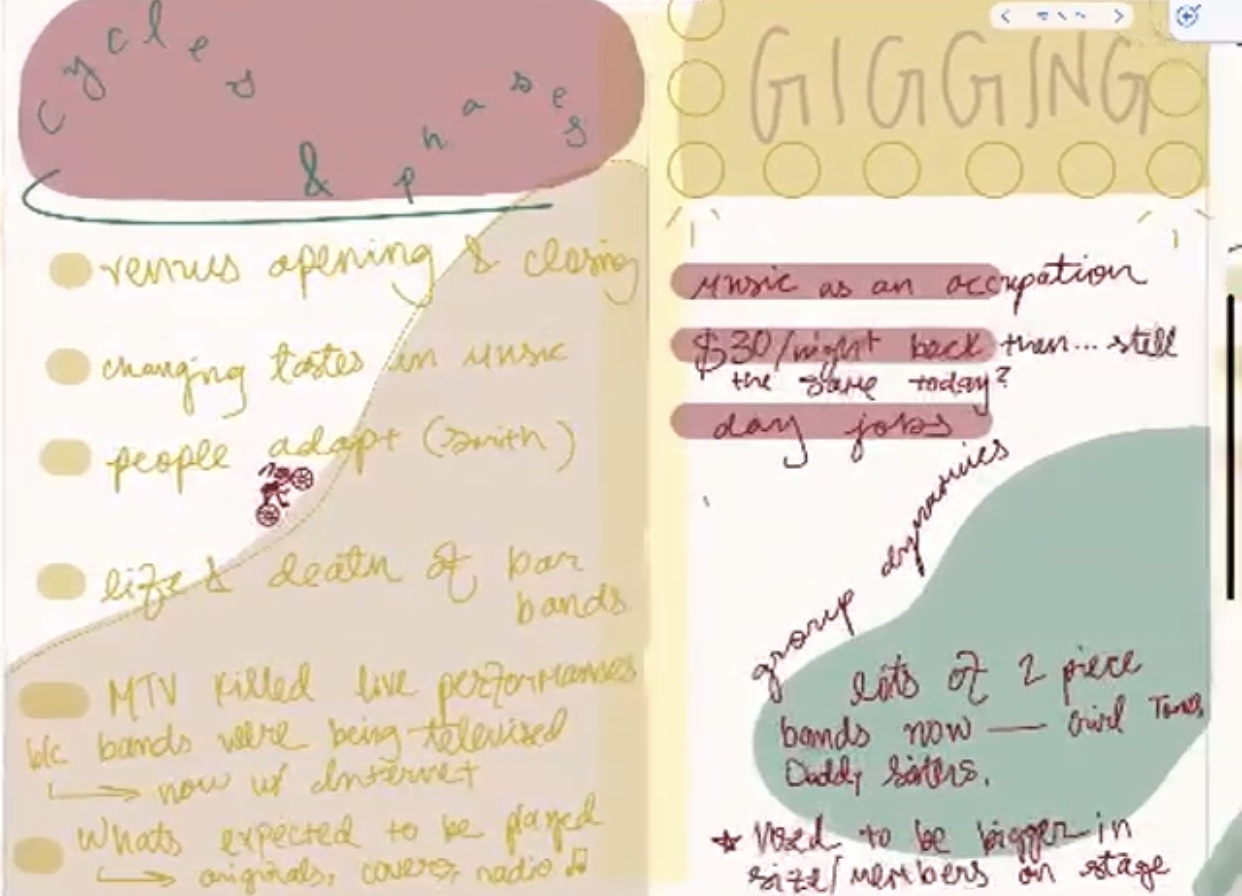 Cycles
& phases
venues opening & closing
changing tastes in music
people adapt (smith)
life & death of bar
bands
MTV killed live performances
b/c bands were being televised
now w/ Internet
Whats expected to be played
originals, covers, radio
GIGGING
music as an occupation
$30/night back then... still
the same today?
day jobs
group dynamics
lots of 2 piece
bands now — Girl Tones,
Daddy Sisters.
Used to be bigger in
size/members on stage